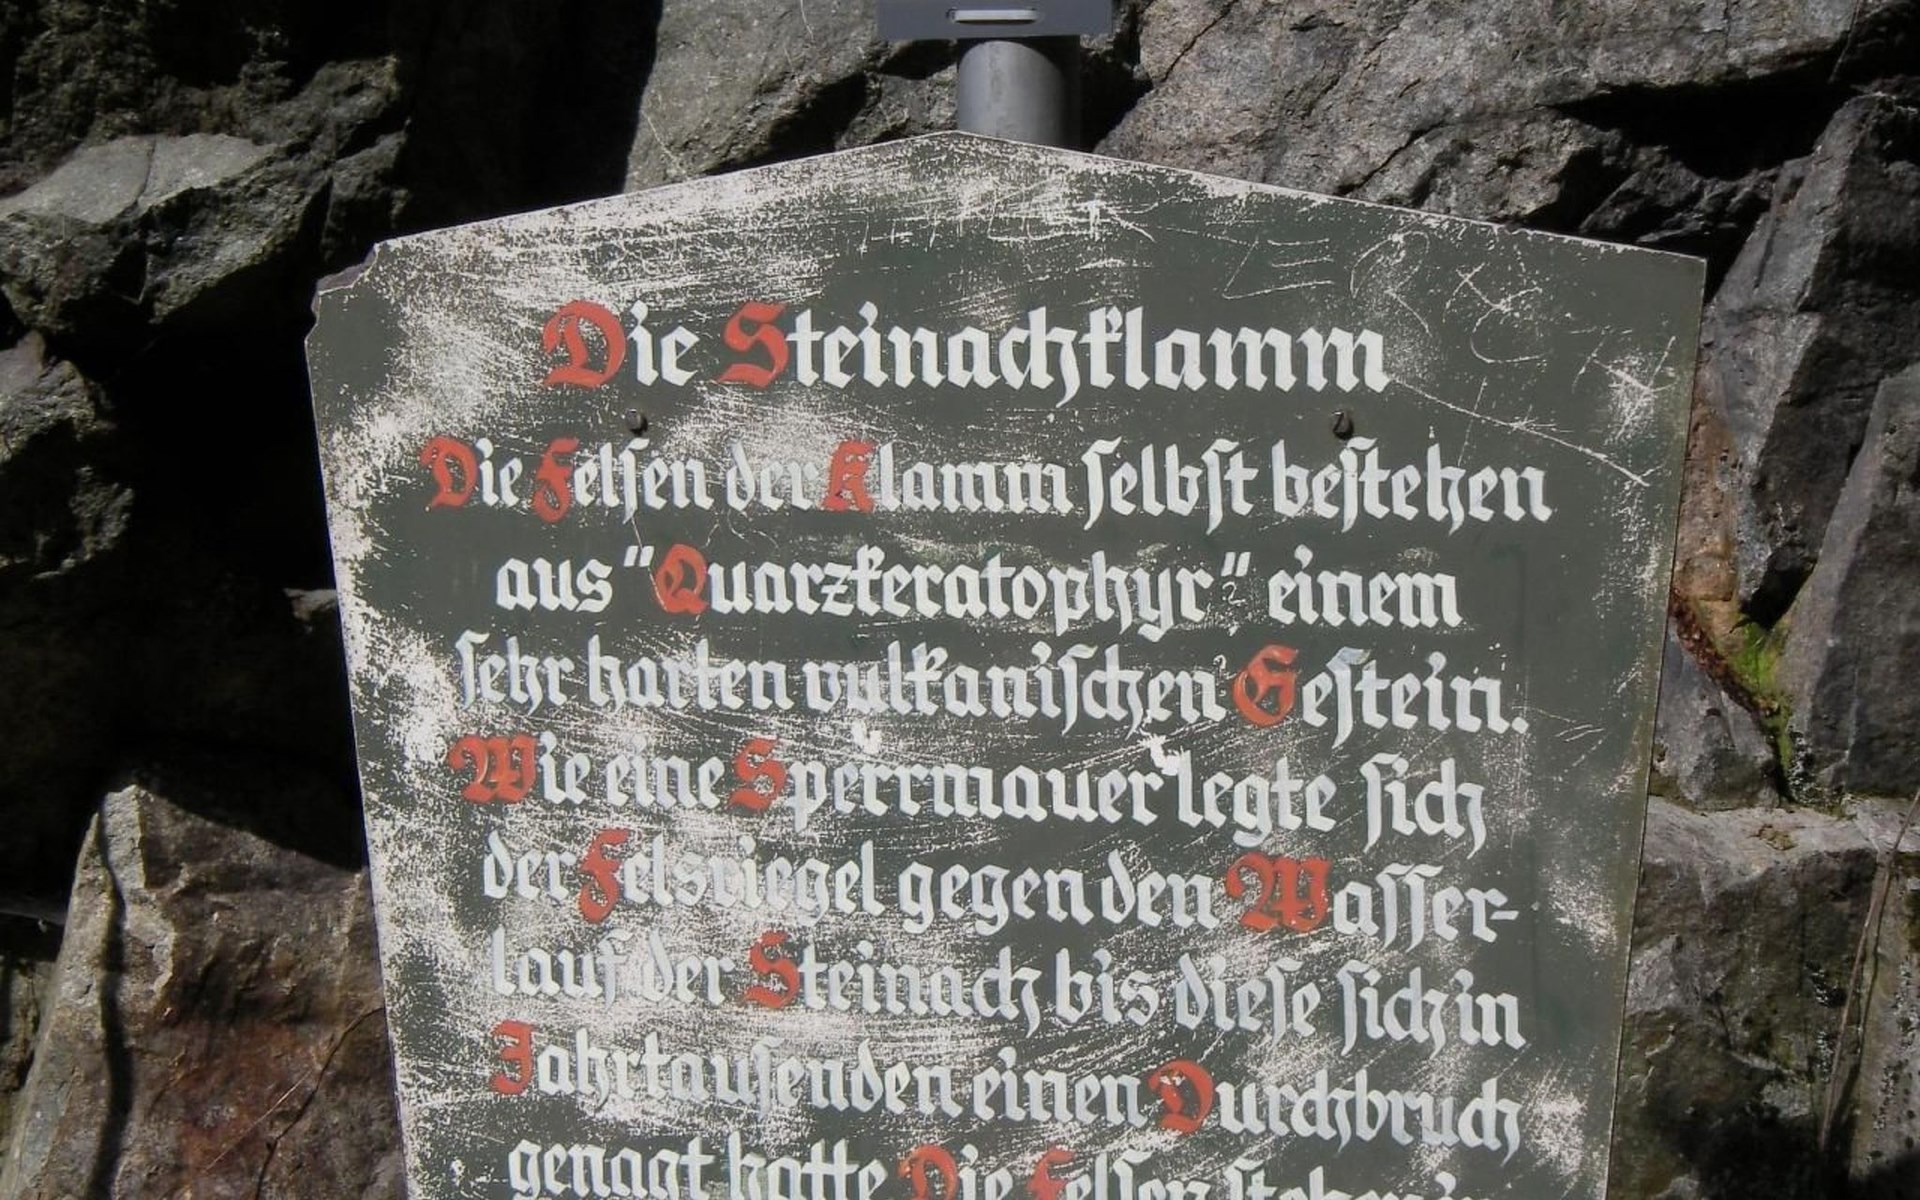 Die Steinachklamm
Die Felsen der Klamm selbst bestehen
aus "Quarzkeratophyr" einem
sehr harten vulkanischen Gestein.
Wie eine Sperrmauer legte sich
der Felsriegel gegen den Wasser-
lauf der Steinach bis diese sich in
Jahrtausenden einen Durchbruch
genagt hatte Die Felsen stehen in